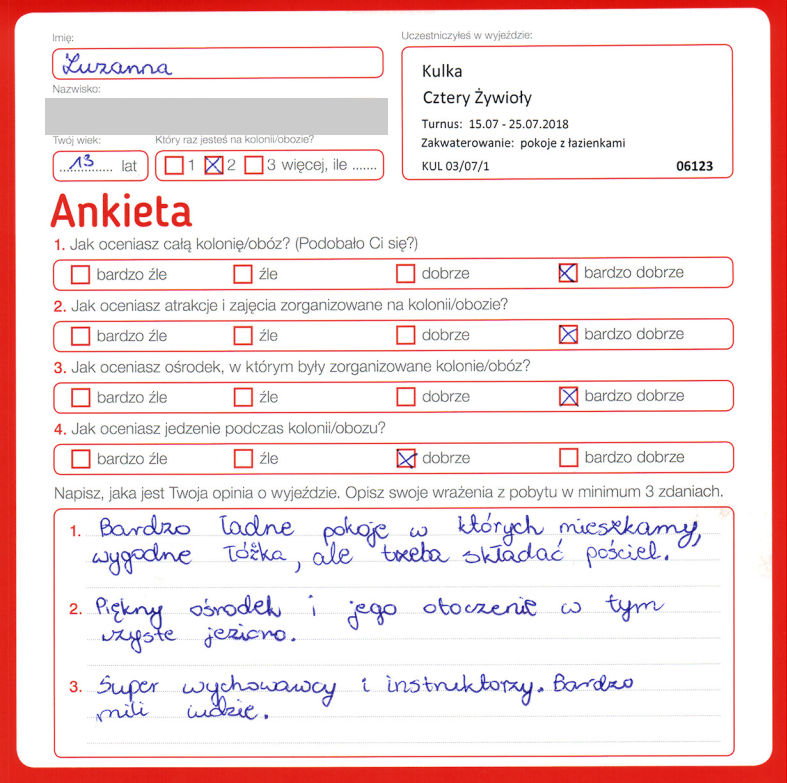 Imię:
Zuzanna
Nazwisko:
Twój wiek:
13 lat
Który raz jesteś na kolonii/obozie?
1 2 3 więcej, ile .......
Uczestniczyłeś w wyjeździe:
Kulka
Cztery Żywioły
Turnus: 15.07 - 25.07.2018
Zakwaterowanie: pokoje z łazienkami
KUL 03/07/1 06123
Ankieta
1. Jak oceniasz całą kolonię/obóz? (Podobało Ci się?)
bardzo źle źle dobrze bardzo dobrze
2. Jak oceniasz atrakcje i zajęcia zorganizowane na kolonii/obozie?
bardzo źle źle dobrze bardzo dobrze
3. Jak oceniasz ośrodek, w którym były zorganizowane kolonie/obóz?
bardzo źle źle dobrze bardzo dobrze
4. Jak oceniasz jedzenie podczas kolonii/obozu?
bardzo źle źle dobrze bardzo dobrze
Napisz, jaka jest Twoja opinia o wyjeździe. Opisz swoje wrażenia z pobytu w minimum 3 zdaniach.
1. Bardzo ładne pokoje w których mieszkamy,
wygodne łóżka, ale trzeba składać pościel.
2. Piękny ośrodek i jego otoczenie w tym
czyste jezioro.
3. Super wychowawcy i instruktorzy. Bardzo
mili ludzie.